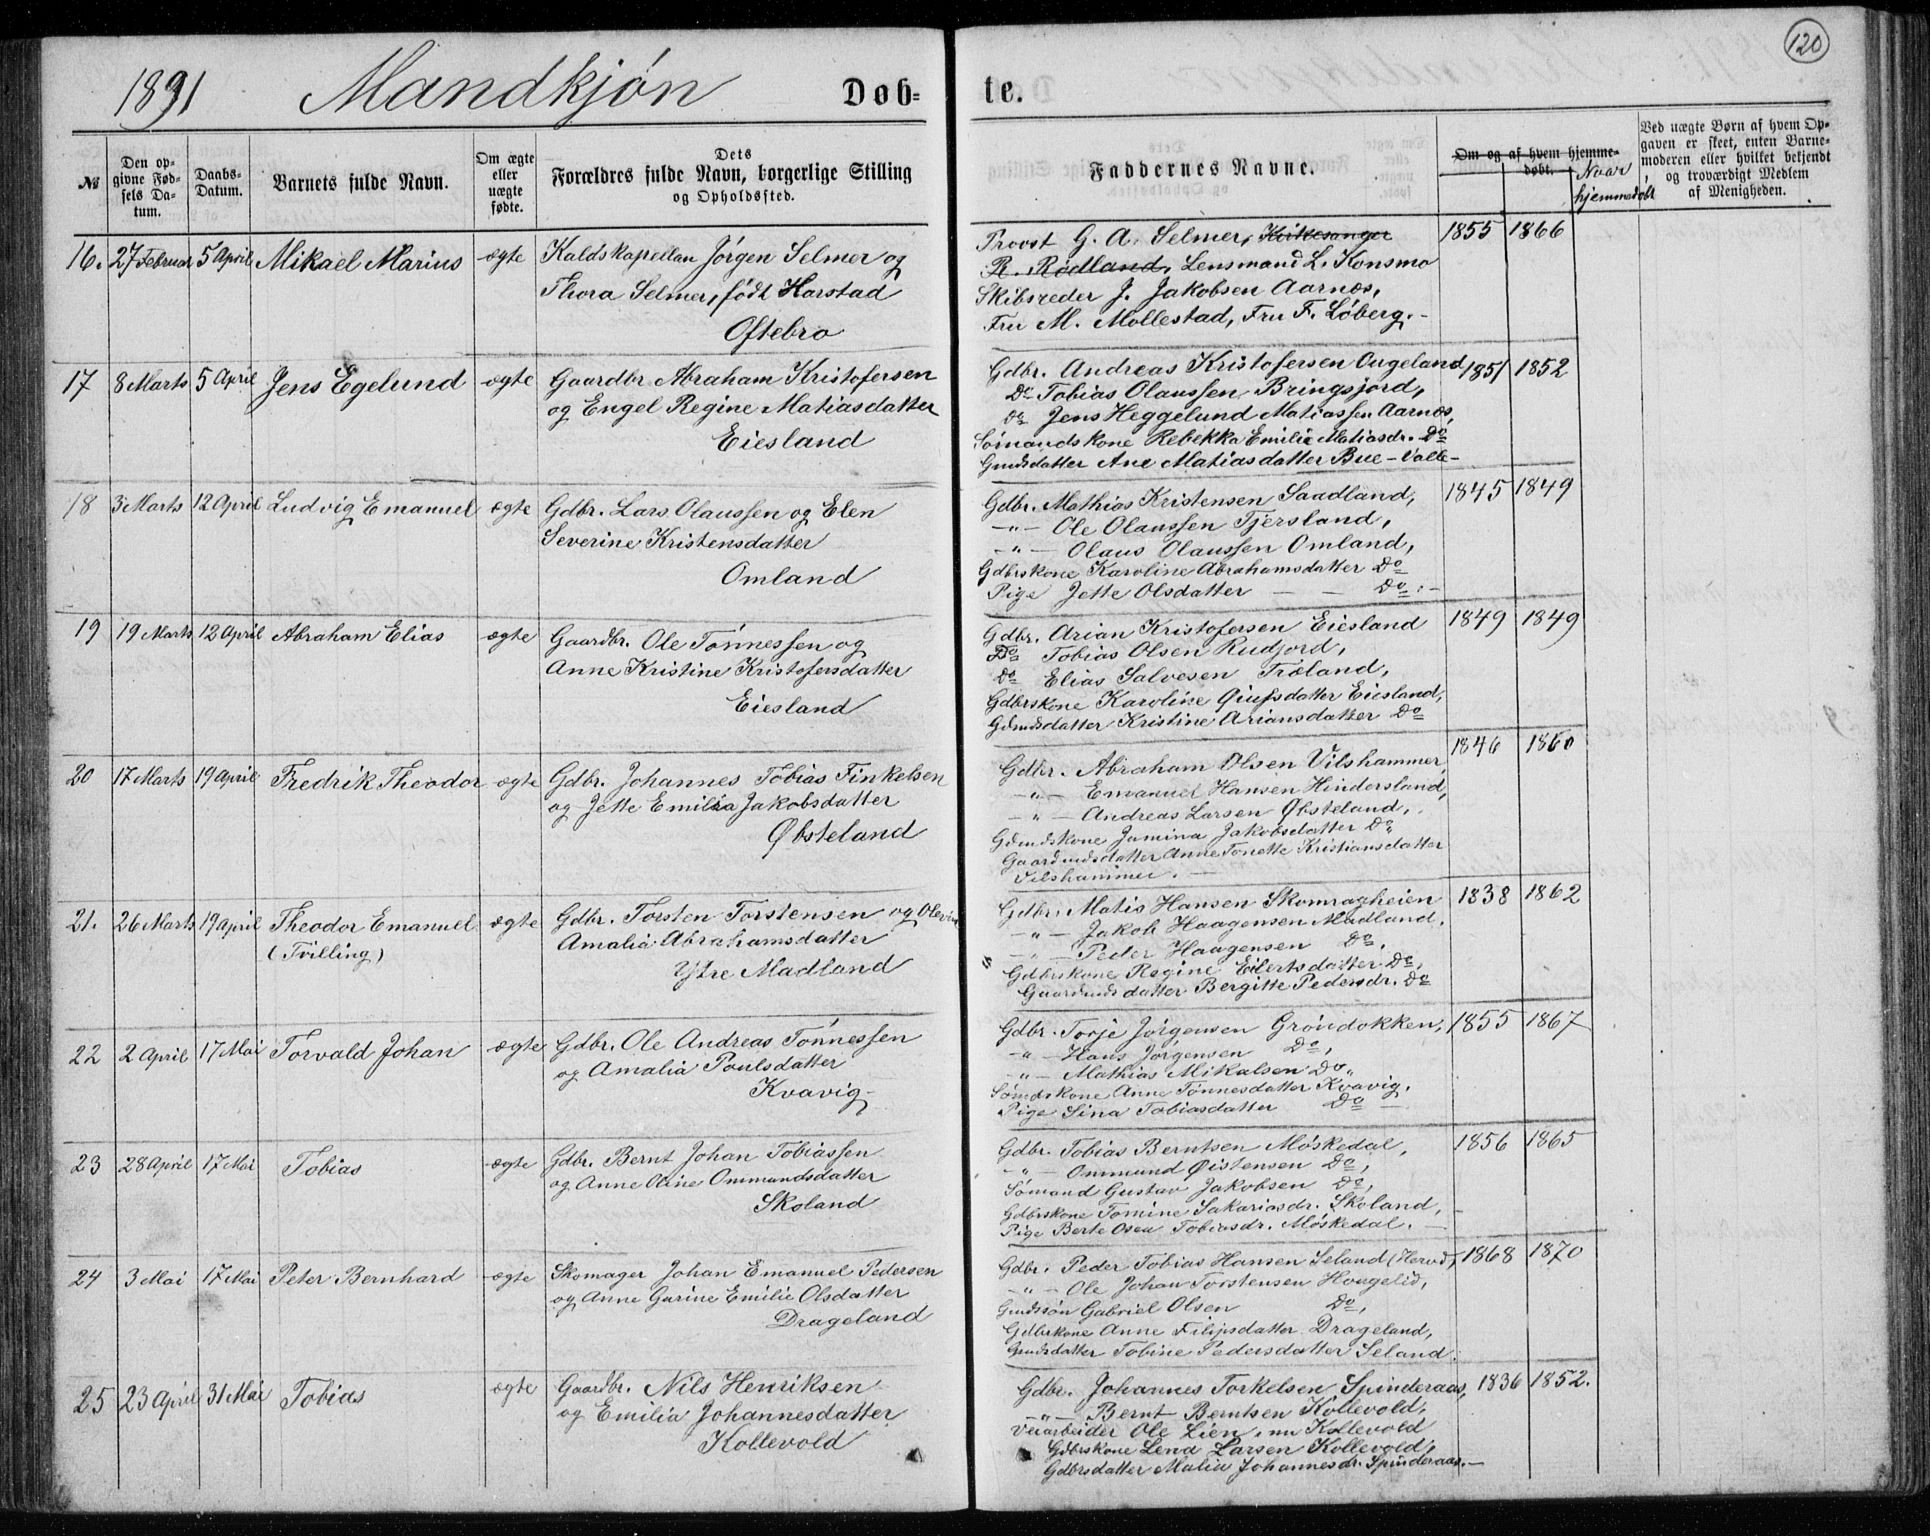 120
1891 Mandkjön Døb- te.
№
Den opgivne Fødsels Datum.
Daabs-Datum.
Barnets fulde Navn.
Om ægte eller uægte fødte.
Dets Forældres fulde Navn, borgerlige Stilling og Opholdssted.
Faddernes Navne.
Om og af hvem hjemmedøbt.
Naar hjemmedøbt
Ved uægte Børn af hvem Opgaven er skeet, enten Barnemoderen eller hvilket bekjendt og troværdigt Medlem af Menigheden.
16. 27 Februar 5 April Mikael Marius ægte Kaldskapellan Jörgen Selmer og
Thora Selmer, födt Harstad
Oftebro
Provst G. A. Selmer, Kirkesanger 1855 1866
R. Rødland, Lensmand L. Konsmo
Skibsreder J. Jakobsen Aarnæs,
Fru M. Mollestad, Fru F. Löberg.-
17 8 Marts 5 April Jens Egelund ægte Gaardbr. Abraham Kristofersen
og Engel Regine Matiasdatter
Eiesland
Gdbr. Andreas Kristofersen Ougeland 1851 1852
Do Tobias Olaussen Bringsjord,
Do Jens Heggelund Matiassen Aarnæs,
Sömandskone Rebekka Emilie Matiasdr. Do
Gmdsdatter Ane Matiasdatter Bue-Valle-
18 3 Marts 12 April Ludvig Emanuel ægte Gdbr. Lars Olaussen og Elen
Severine Kristensdatter
Omland
Gdbr. Mathias Kristensen Saadland, 1845 1849
-"- Ole Olaussen Tjersland,
-"- Olaus Olaussen Omland,
Gdbrskone Karoline Abrahamsdatter Do
Pige Jette Olsdatter - - Do.-
19 19 Marts 12 April Abraham Elias ægte Gaardbr. Ole Tönnessen og
Anne Kristine Kristofersdatter
Eiesland
Gdbr. Arian Kristofersen Eiesland 1849 1849
Do Tobias Olsen Rudjord,
Do Elias Salvesen Træland,
Gdbrskone Karoline Giufsdatter Eiesland,
Gdmdsdatter Kristine Ariansdatter Do
20 17 Marts 19 April Fredrik Theodor ægte Gdbr. Johannes Tobias Finkelsen
og Jette Emilia Jakobsdatter
Øbsteland
Gdbr. Abraham Olsen Vilshammer, 1846 1860
-"- Emanuel Hansen Hindersland,
-"- Andreas Larsen Øbsteland,
Gdmdskone Jamina Jakobsdatter Do,
Gaardmdsdatter Anne Tonette Kristiansdatter
Vilshammer.-
21. 26 Marts 19 April Theodor Emanuel ægte Gdbr. Torsten Torstensen og Olevine
(Tvilling) Amalia Abrahamsdatter
Ytre Madland
Gdbr. Matis Hansen Skomragheien 1838 1862
-"- Jakob Haagensen Madland,
-"- Peder Haagensen Do,
Gdbrskone Regine Eilertsdatter Do,
Gaardmdsdatter Bergitte Pedersdr. Do
22 2 April 17 Mai Torvald Johan ægte Gdbr. Ole Andreas Tönnessen
og Amalia Poulsdatter
Kvavig-
Gdbr. Torje Jörgensen Gröndokken, 1855 1867
-"- Hans Jörgensen Do,
-"- Mathias Mikalsen Do,
Sömdskone Anne Tönnesdatter Kvavig,
Pige Sina Tobiasdatter Do -
23 28 April 17 Mai Tobias ægte Gdbr. Bernt Johan Tobiassen
og Anne Oline Ommundsdatter
Skoland
Gdbr. Tobias Berntsen Möskedal, 1856 1865
-"- Ommund Øistensen Do,
Sömand Gustav Jakobsen Do,
Gdbrskone Tomine Sakariasdr. Skoland,
Pige Berte Osea Tobiasdr. Möskedal.-
24 3 Mai 17 Mai Peter Bernhard ægte Skomager Johan Emanuel Pedersen
og Anne Gurine Emilie Olsdatter
Drageland
Gdbr. Peder Tobias Hansen Seland (Herred), 1868 1870
-"- Ole Johan Torstensen Hougelid,
Gmdssön Gabriel Olsen Do,
Gdbrskone Anne Filipsdatter Drageland,
Gmdsdatter Tobine Pedersdatter Seland.
25 23 April 31 Mai Tobias ægte Gaardbr. Nils Henriksen
og Emilia Johannesdatter
Kollevold
Gdbr. Johannes Torkelsen Spinderaas, 1836 1852.
-"- Bernt Berntsen Kollevold,
Veiarbeider Ole Lien, nu Kollevold
Gdbrskone Lena Larsen Kollevold,
Gdbrsdatter Malia Johannesdr. Spinderaas.-